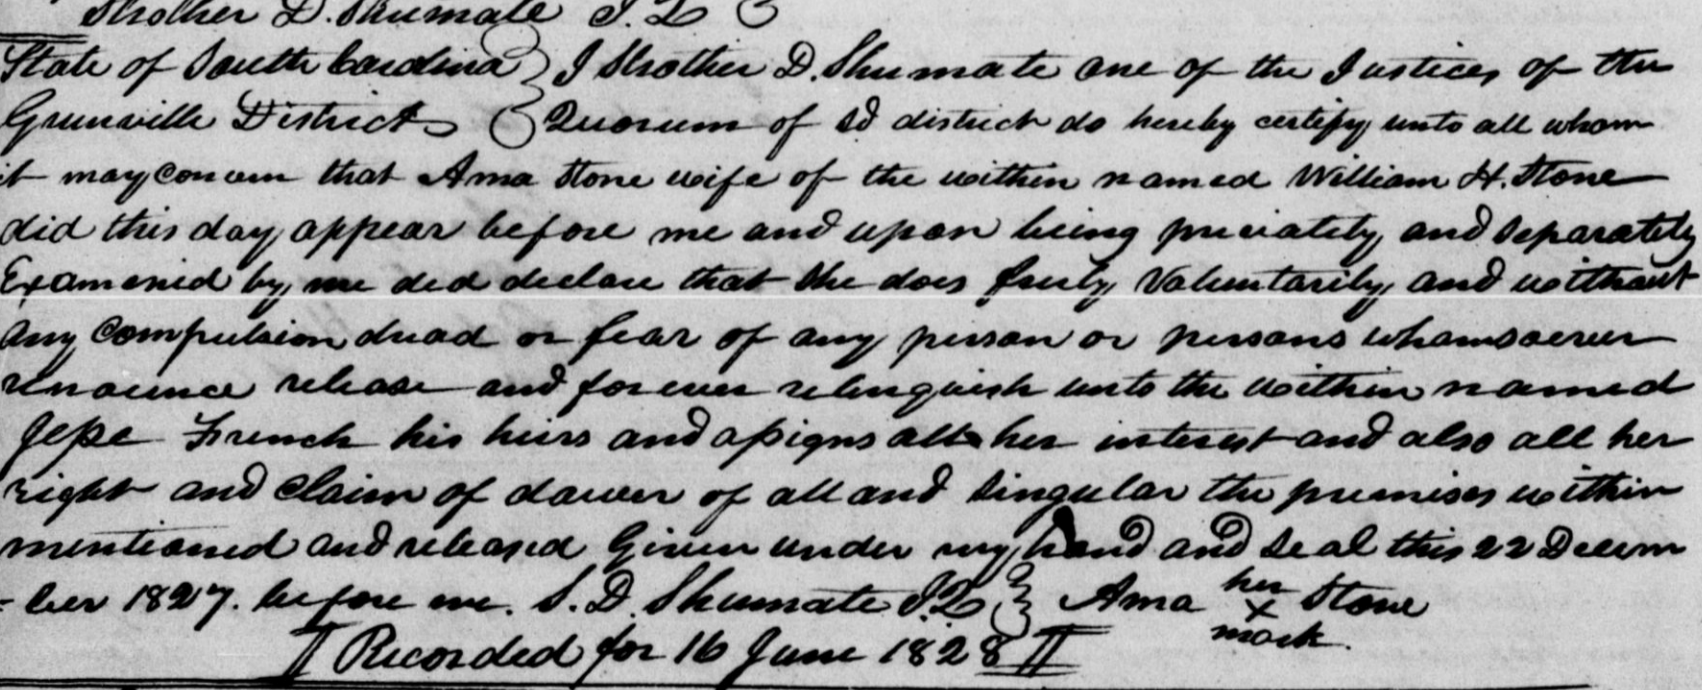 Strother D. Shumate J. Q
State of South Carolina } I Strother D. Shumate one of the Justices of the
Greenville District } Quorum of sd district do hereby certify unto all whom
it may concern that Ama Stone wife of the within named William H. Stone
did this day appear before me and upon being privately and separately
Examened by me did declare that she does freely Voluntarily and without
any Compulsion dread or fear of any person or persons whomsoever
renounce release and forever relinquish unto the within named
Jesse French his heirs and assigns all her interest and also all her
right and claim of dower of all and singular the premises within
mentioned and released Given under my hand and seal this 22 Decem
-ber 1827. before me. S. D. Shumate J. Q } Ama her x mark Stone
Recorded for 16 June 1828